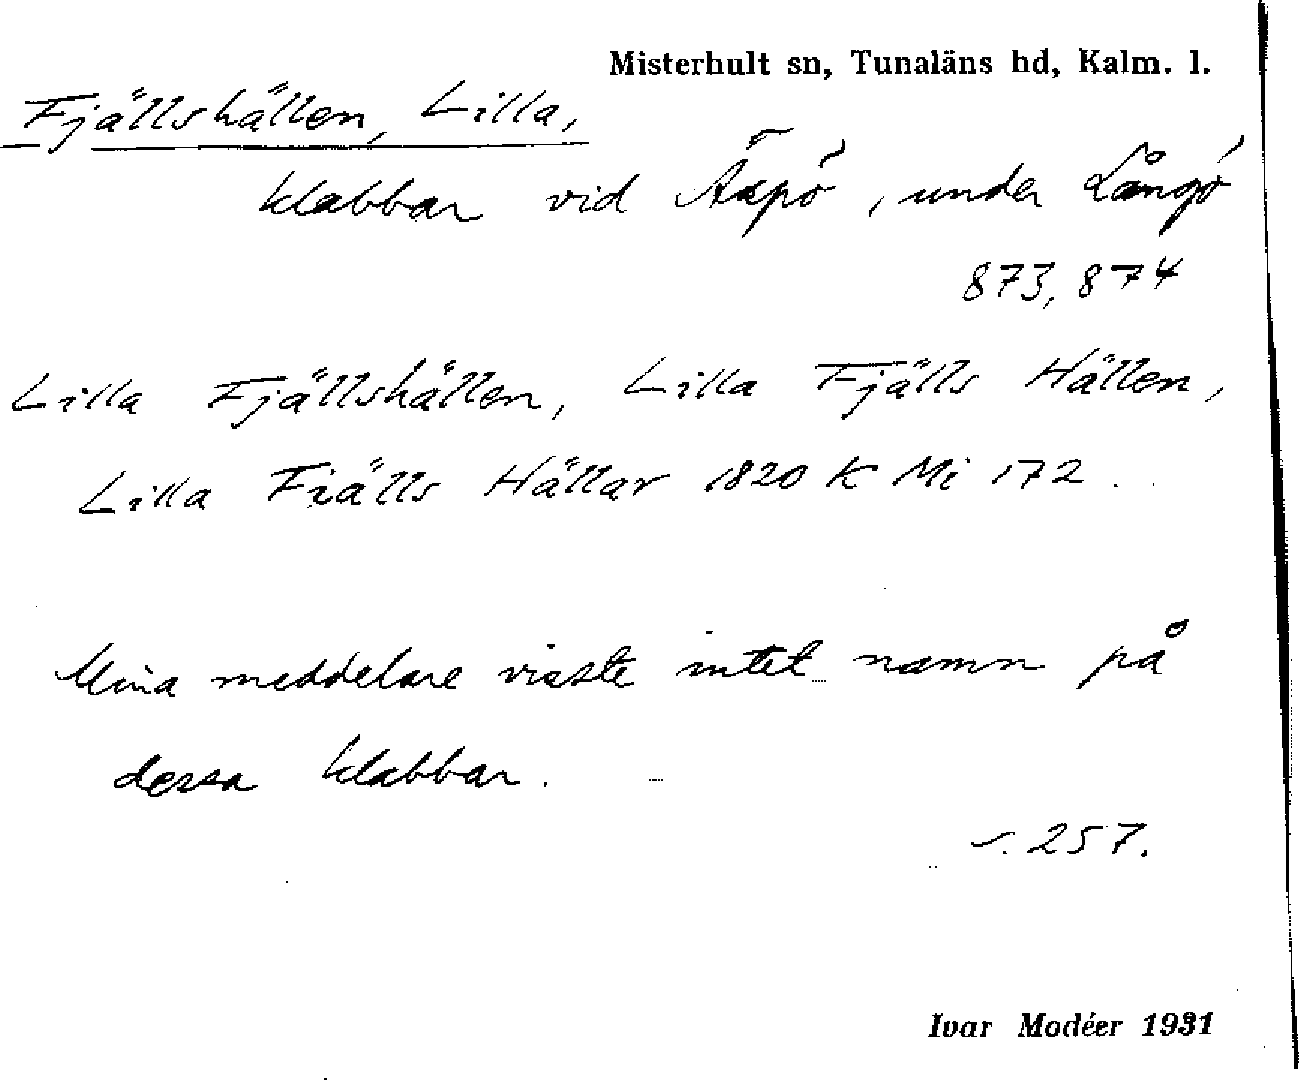 Misterhult sn, Tunaläns hd, Kalm. l.
Fjällshällen, Lilla,
klabbar vid Äspö, under Långö
873, 874
Lilla Fjällshällen, Lilla Fjälls Hällen,
Lilla Fiälls Hällar 1820 K Mi 172.
Mina meddelare visste intet namn på
dessa klabbar.
s. 257.
Ivar Modéer 1931